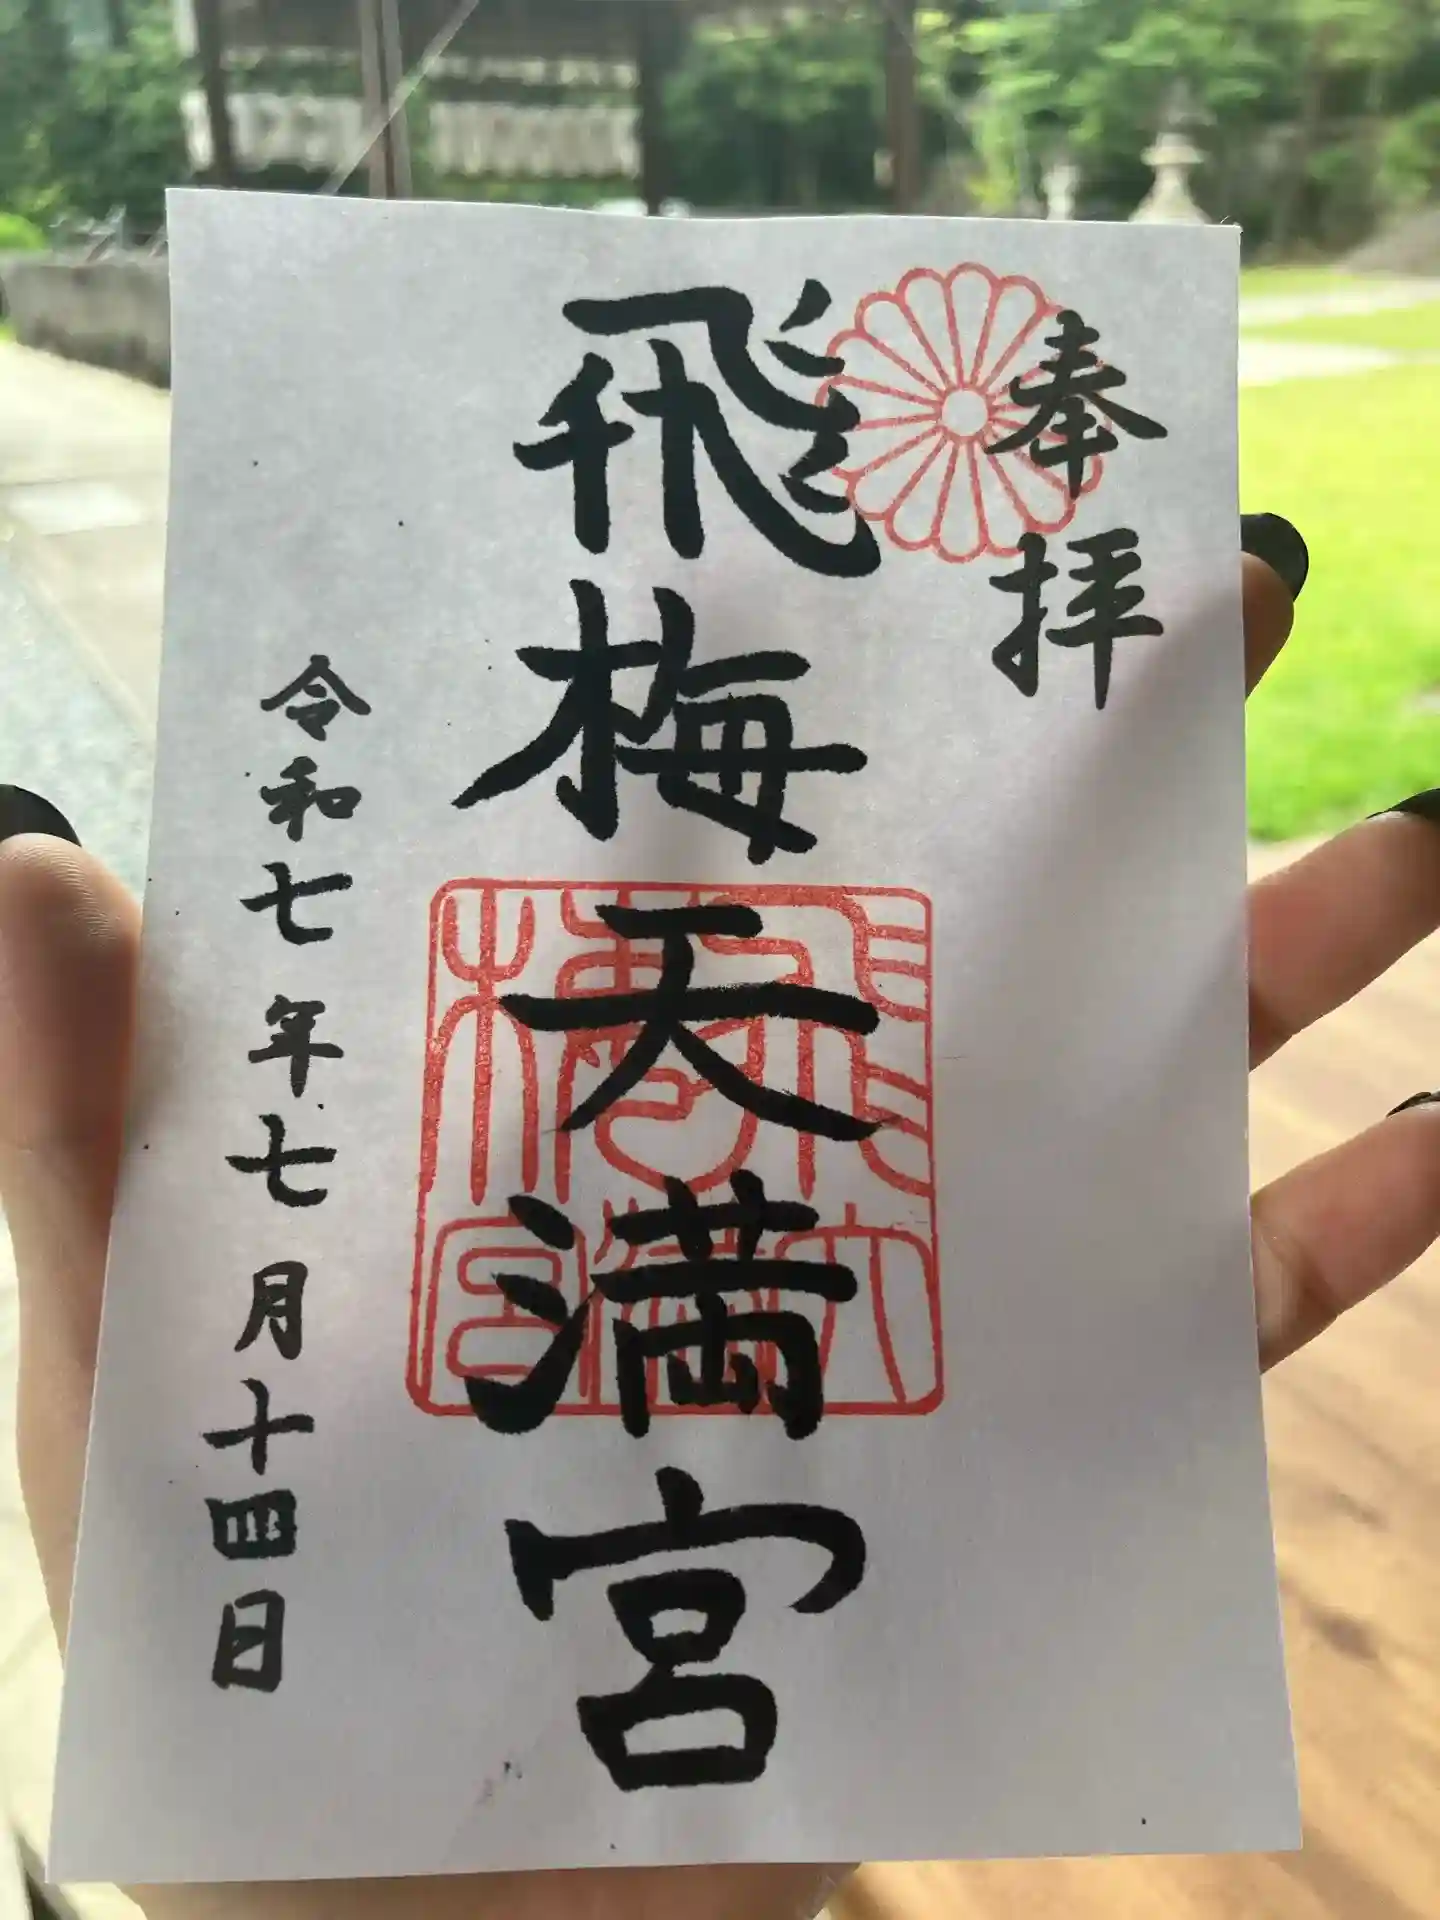 奉拝
飛梅天満宮
飛梅天満宮
令和七年七月十四日